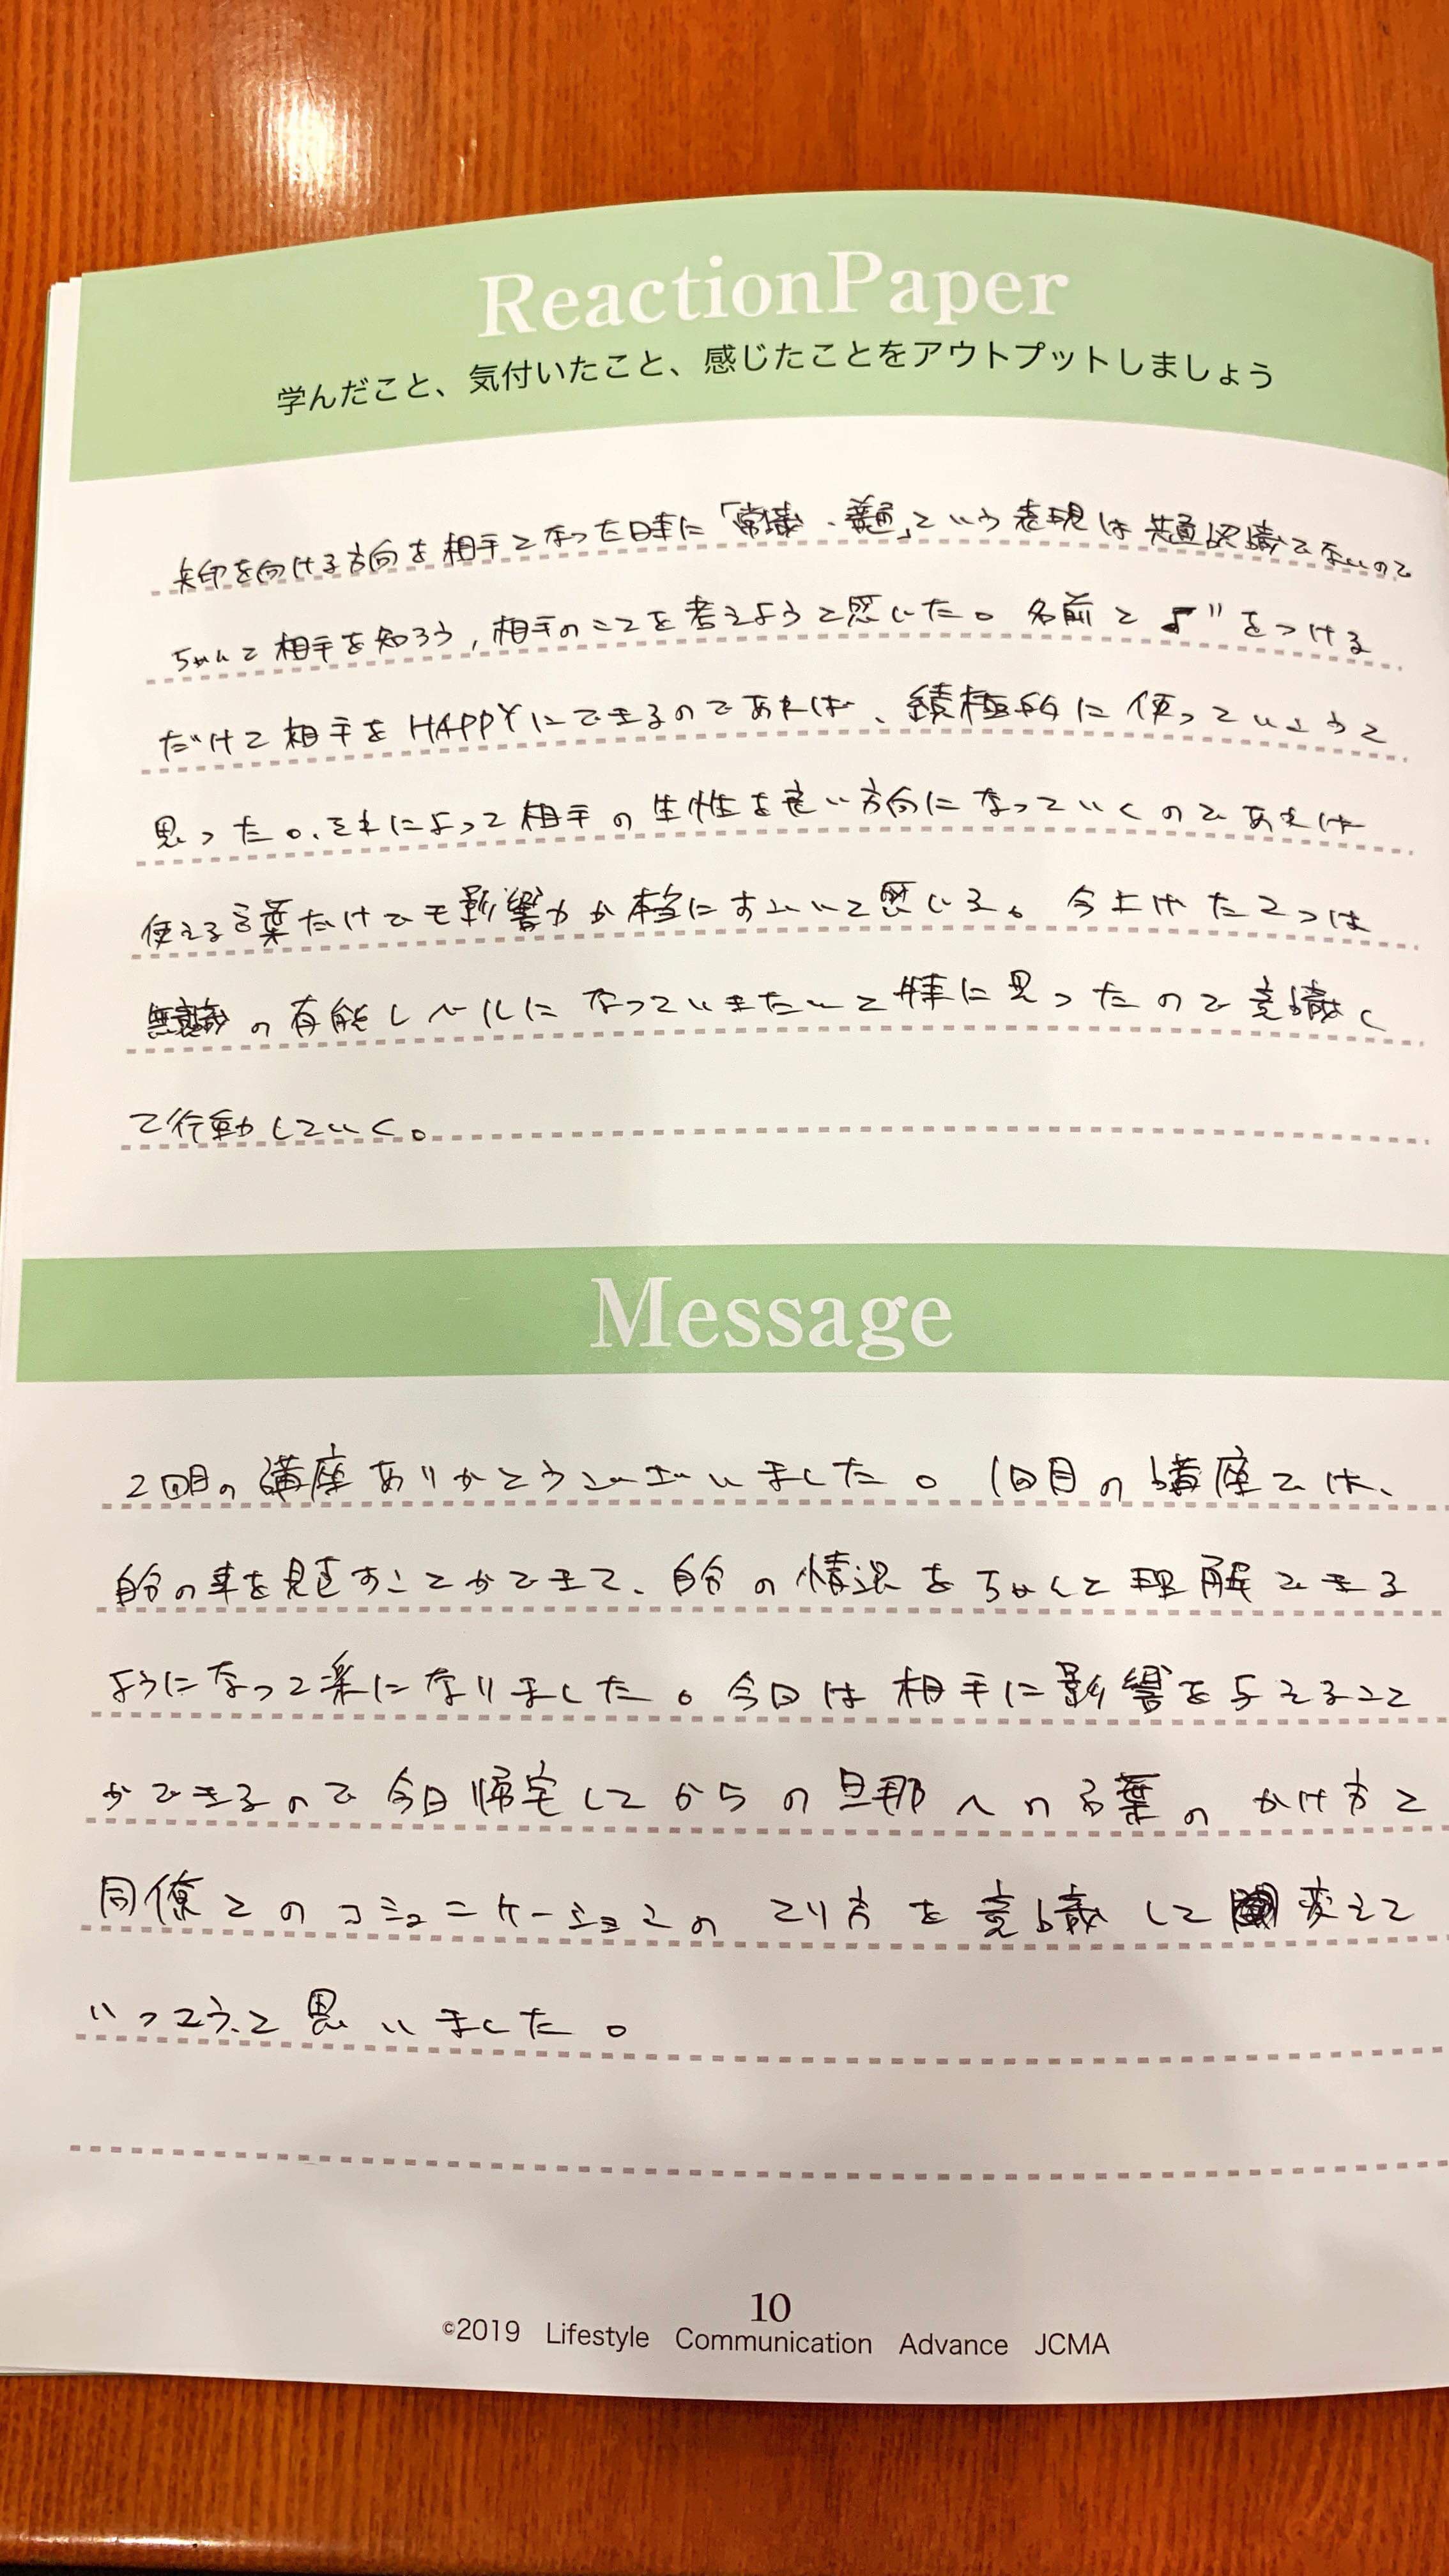 ReactionPaper
学んだこと、気付いたこと、感じたことをアウトプットしましょう
矢印を向ける方向を相手となった時に「常識・普通」という表現は共通認識でないので
ちゃんと相手を知ろう,相手のことを考えようと感じた。名前と"をつける
だけで相手をHAPPYにできるのであれば、積極的に使っていこうと
思った。それによって相手の生性を良い方向になっていくのであれば
使える言葉だけでも影響力が本当にすごいと感じる。今上げた2つは
無意識の有能レベルになっていきたいと特に思ったので意識し
て行動していく。
Message
2回目の講座ありがとうございました。1回目の講座では、
自分の事を見直すことができて、自分の情況をちゃんと理解できる
ようになって楽になりました。今日は相手に影響を与えること
ができるので今日帰宅してからの旦那への言葉のかけ方と
同僚とのコミュニケーションのとり方を意識して変えて
いってうと思いました。
10
©2019 Lifestyle Communication Advance JCMA